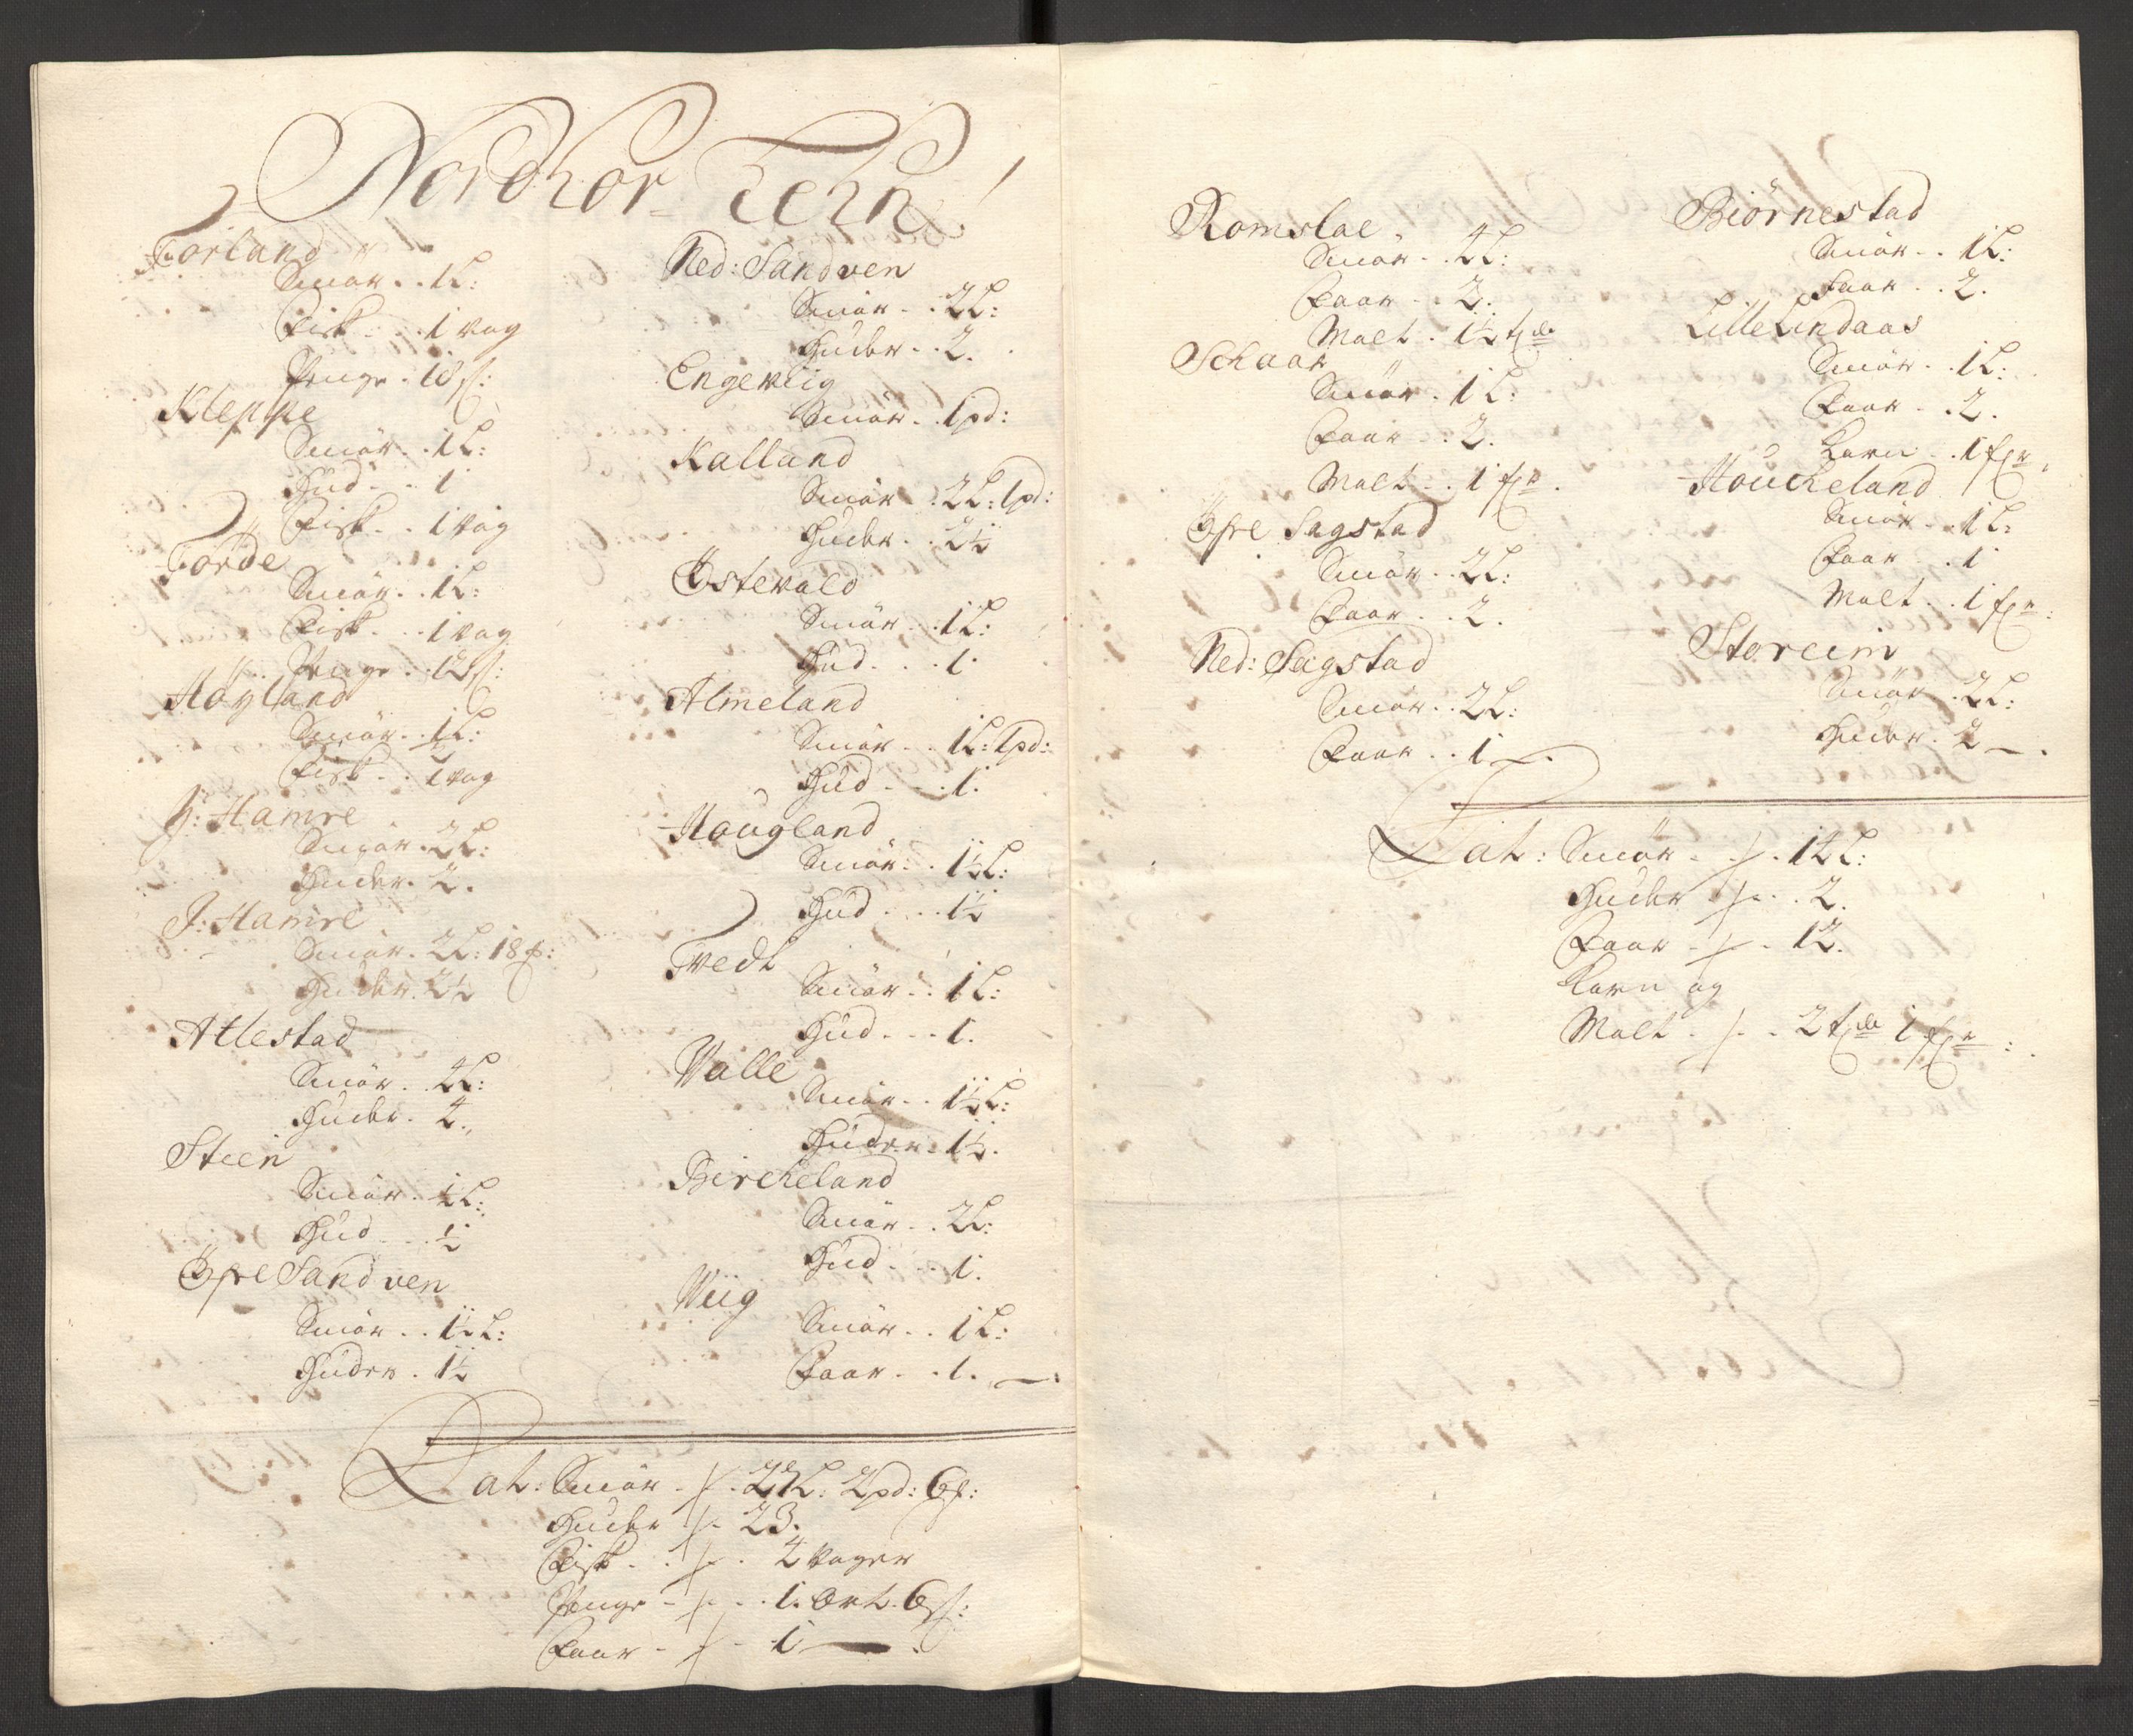 Nordhor Lehn
Førland
Smør . . 1 L:
Fisk . . 1 vog
Penge . 18 ß:
Kleppe
Smør . . 1 L:
Hud . . 1
Fisk . . 1 vog
Førde
Smør . . 1 L:
Fisk . . 1 vog
Penge . . 12 ß:
Høyland
Smør . . 1 L:
Fisk . . 1 vog
Y: Hamre
Smør . 2 L:
Huder . 2.
I: Hamre
Smør . 2 L: 18
Huder . 2½
Atlestad
Smør . 2 L:
Huder . 2.
Steen
Smør . ½ L:
Hud . . ½
Øfre Sandven
Smør . . 1½ L:
Huder . 1½
Ned: Sandven
Smør . . 2 L:
Huder . . 2.
Engeviig
Smør . . 1 pd:
Kalland
Smør . 2 L: 1 pd:
Huder . . 2½
Østevald
Smør . . 1 L:
Hud . . . 1.
Almeland
Smør . . 1 L: 1 pd:
Hud . . . 1.
Hougland
Smør . . 1½ L:
Hud . . . 1½
Tvedt
Smør . . 1 L:
Hud . . . 1.
Valle
Smør . . 1½ L:
Huder . 1½.
Bircheland
Smør . . 2 L:
Hud . . . 1.
Viig
Smør . . 1 L:
Faar . . 1.
Lat: Smør . 27 L: 2 pd: 6
Huder 23.
Fisk . . 4 voger
Penge . . 1. Ort. 6 ß:
Faar . 1
Romslae
Smør . . 2 L:
Faar . . 2.
Malt . 1½
Schaar
Smør . 1 L:
Faar . . 2.
Malt . . 1
Øfre Sagstad
Smør . . 2 L:
Faar . . 2.
Ned: Sagstad
Smør . . 2 L:
Faar . . 1
Biørnestad
Smør . . 1 L:
Faar . . 2.
Lille Lindaas
Smør . . 1 L:
Faar . . 2.
Korn . . 1
Houcheland
Smør . . 1 L:
Faar . . 1
Malt . . 1
Storeim
Smør . 2 L:
Huder . 2
Lat: Smør . 12 L:
Huder . . 2.
Faar . 12.
Korn og
Malt . . 2 1